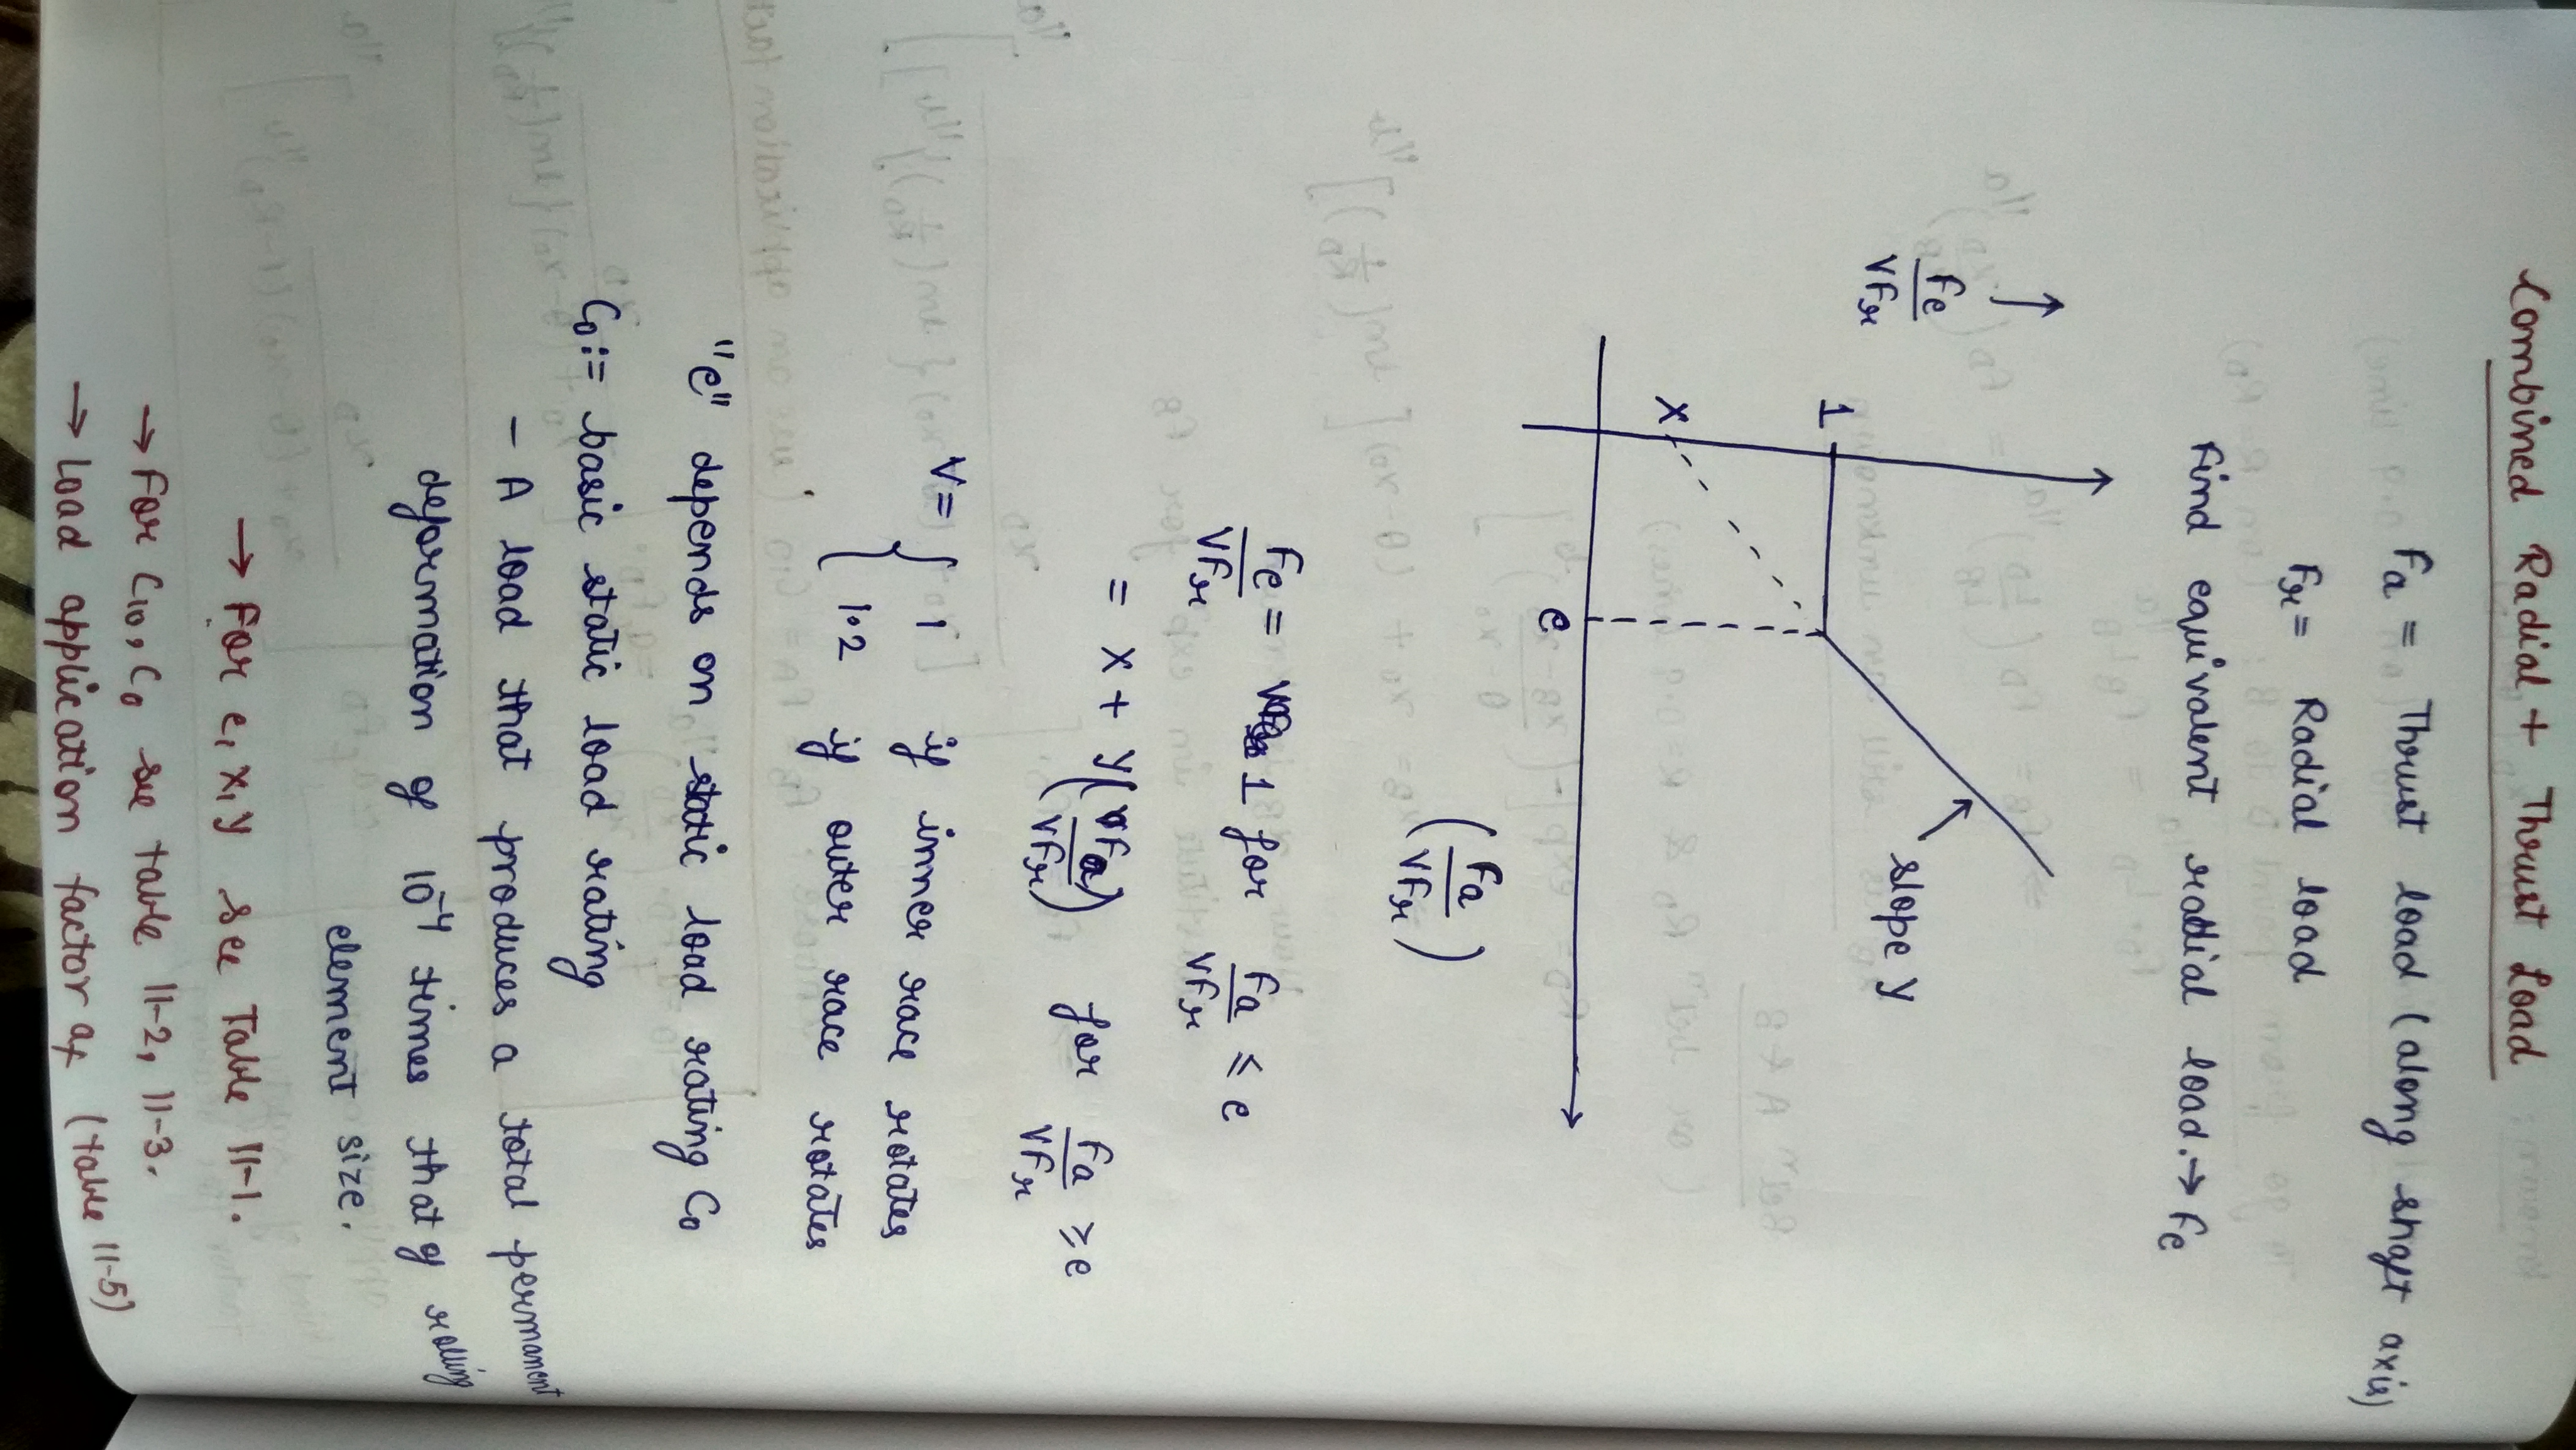 Combined Radial + Thrust Load
Fa = Thrust load (along shaft axis)
Fr = Radial load
Find equivalent radial load. → Fe
↑
Fe
VFr
slope y
1
x
e
(Fa / VFr)
Fe / VFr = 1 for Fa / VFr ≤ e
= x + y(Fa / VFr) for Fa / VFr ≥ e
V = { 1 if inner race rotates
1.2 if outer race rotates
"e" depends on static load rating C₀
C₀ := basic static load rating
- A load that produces a total permanent
deformation of 10⁻⁴ times that of rolling
element size.
→ For e, x, y see Table 11-1.
→ For C₁₀, C₀ see table 11-2, 11-3.
→ Load application factor af (table 11-5)